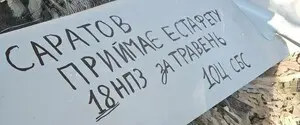 САРАТОВ
ПРИЙМАЄ ЕСТАФЕТУ
18 НПЗ ЗА ТРАВЕНЬ
1ОЦ СБС